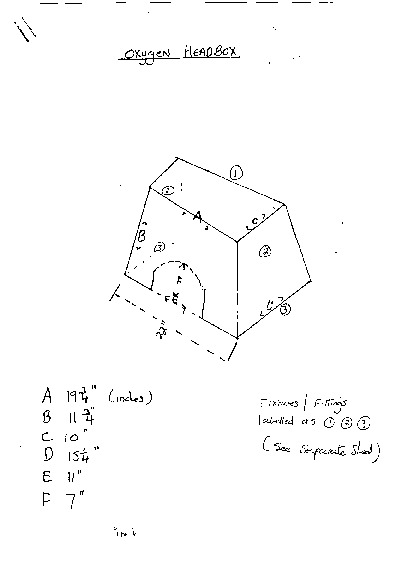 OXYGEN HEADBOX
①
②
A
C
B
③
②
F
E
③
A 19¼" (inches)
B 11¾"
C 10"
D 15¼"
E 11"
F 7"
Fixtures / Fittings
labelled as ① ② ③
(See Separate Sheet)